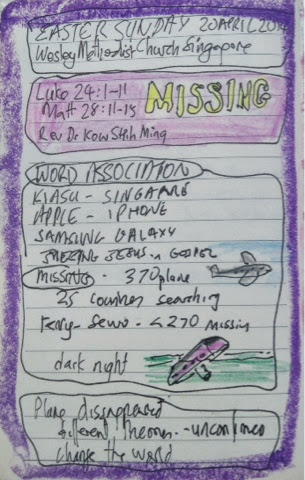 EASTER SUNDAY 20 APRIL 201
Wesley Methodist Church Singapore
Luke 24:1-11
MISSING
Matt 28:11-15
Rev Dr Kow Shih Ming
WORD ASSOCIATION
KIASU - SINGAPORE
APPLE - IPHONE
SAMSUNG GALAXY
JESUS GOSPEL
MISSING - 370 plane
25 countries searching
Ferry - Sewol - <270 missing
dark night
Plane disappeared
different theories - unconfirmed
change the world